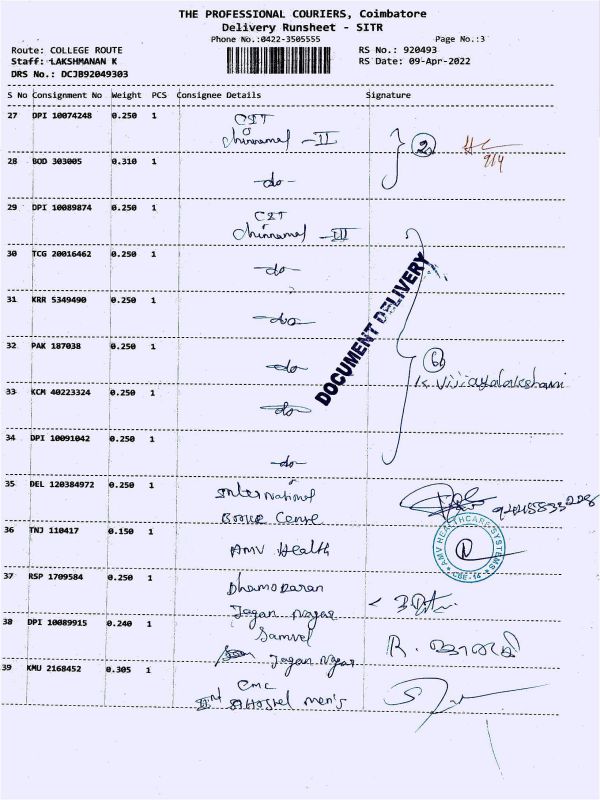 THE PROFESSIONAL COURIERS, Coimbatore
Delivery Runsheet - SITR
Phone No.:0422-3505555
Page No.:3
Route: COLLEGE ROUTE
RS No.: 920493
Staff: LAKSHMANAN K
RS Date: 09-Apr-2022
DRS No.: DCJB92049303
S No Consignment No Weight PCS Consignee Details Signature
27 DPI 10074248 0.250 1 CIT
- II
2
9/4
28 BOD 303005 0.310 1 -do-
29 DPI 10089874 0.250 1 CIT
- III
30 TCG 20016462 0.250 1 -do-
31 KRR 5349490 0.250 1 -do-
DOCUMENT DELIVERY
32 PAK 187038 0.250 1 -do-
6
K. Vijayalakshmi
33 KCM 40223324 0.250 1 -do-
34 DPI 10091042 0.250 1 -do-
35 DEL 120384972 0.250 1 International
36 TNJ 110417 0.150 1 AMV Health
AMV HEALTHCARE SYSTEMS
CBE-14
37 RSP 1709584 0.250 1 Dhamodaran
Jagan Nagar
38 DPI 10089915 0.240 1 Samuel
Jagan Nagar
39 KMU 2168452 0.305 1 CMC
Hostel men's